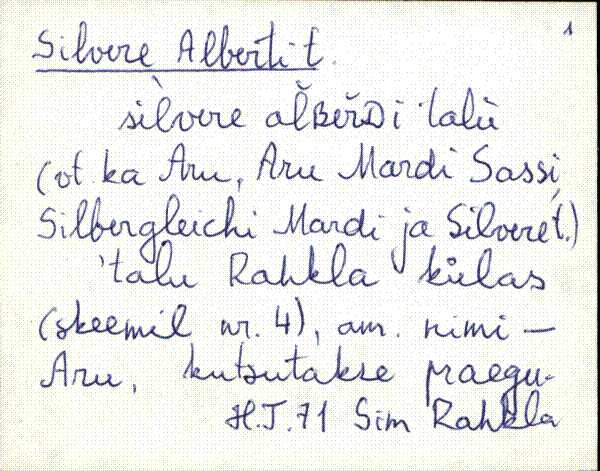 1
Silvere Alberti t.
sìlvere alʙeřᴅi ˈtalù
(vt. ka Aru, Aru Mardi Sassi,
Silbergleichi Mardi ja Silvere t.)
ˈtalu Rahkla külas
(skeemil nr. 4), am. nimi —
Aru, kutsutakse praegu.
H.J. 71 Sim Rahkla